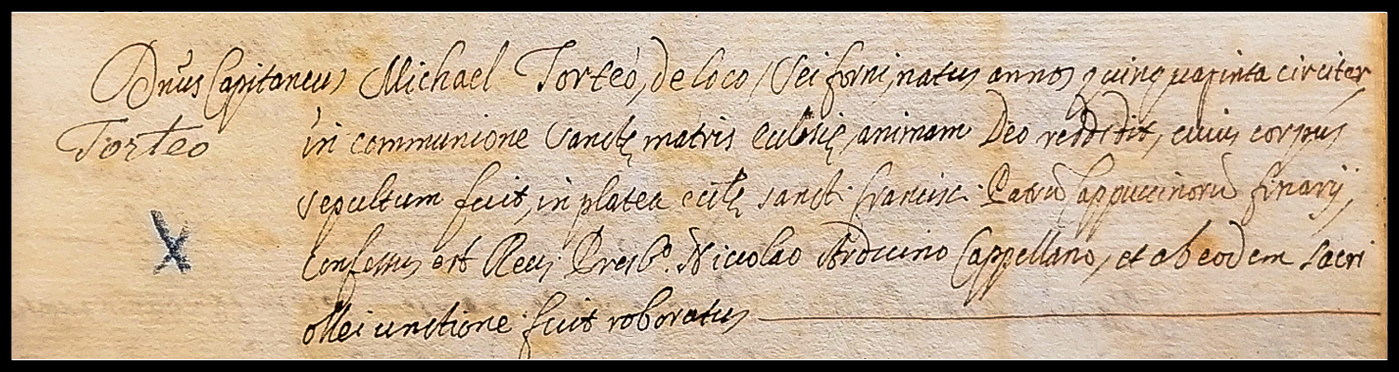 Dnus Capitaneus Michael Torteo, de loco Sei forni, natus annos quinquaginta circiter
Torteo
in communione Sanctę matris Eclesię, animam Deo reddidit, cuius corpus
sepultum fuit, in platea sanct. francisc. Patrū Cappuccinorū finarij,
Confessus est Presbo. Nicolao Arduino Cappellano, et ab eodem sacri
ollei unctione fuit roboratus